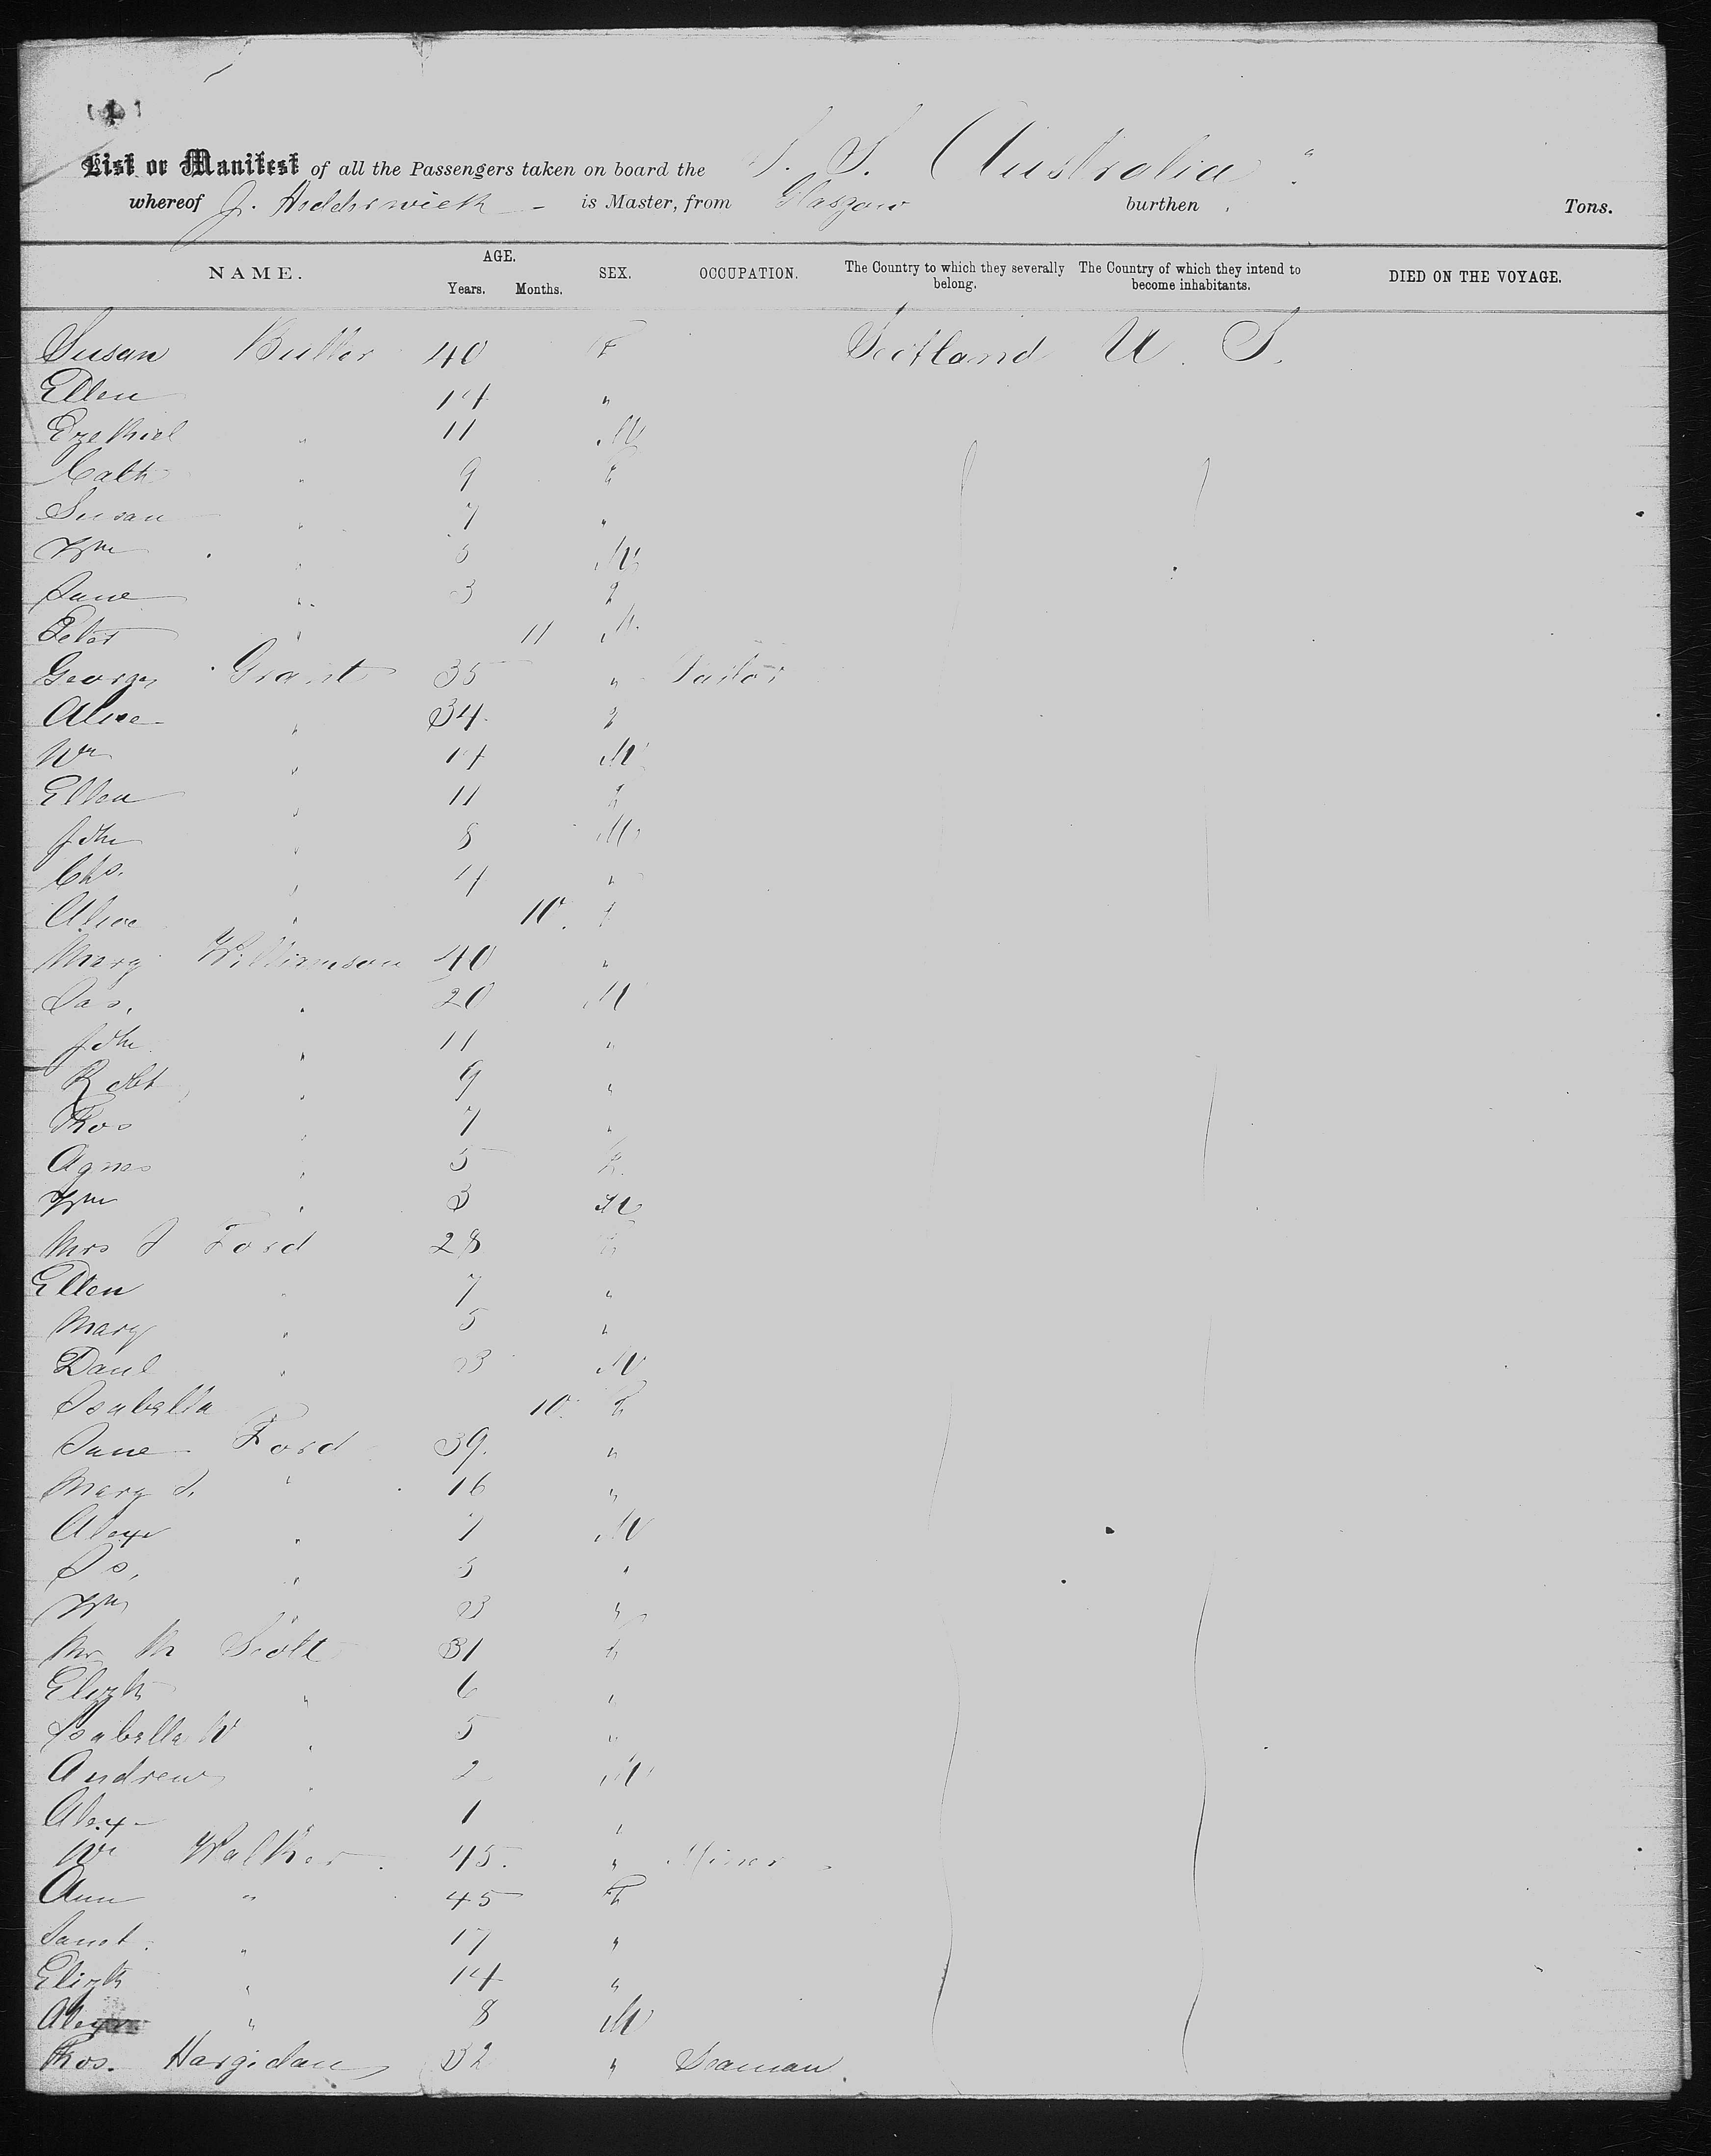 List or Manifest of all the Passengers taken on board the S. S. Australia "
whereof J. Hedderwick is Master, from Glasgow burthen Tons.
NAME. AGE. Years. Months. SEX. OCCUPATION. The Country to which they severally belong. The Country of which they intend to become inhabitants. DIED ON THE VOYAGE.
Susan Butler 40 F Scotland U. S.
Ellen 14 "
Ezekiel " 11 M
Cath " 9 F
Susan " 7 "
Wm " 5 M
Jane " 3 F
Peter " 11 M
George Grant 35 " Tailor
Alice " 34 F
Wm " 14 M
Ellen " 11 F
John " 8 M
Chs. " 4 "
Alice " 10 F
Mary Williamson 40 "
Jas. " 20 M
John " 11 "
Robt " 9 "
Thos " 7 "
Agnes " 5 F
Wm " 3 M
Mrs J Ford 28 F
Ellen " 7 "
Mary " 5 "
Danl " 3 M
Isabella 10 F
Jane Ford 39 "
Mary J. " 16 "
Alexr " 7 M
Js. " 5 "
Wm " 3 "
M Scott 31 F
Elizth " 6 "
Isabella W " 5 "
Andrew " 2 M
Alex " 1 "
Wm Walker 45 " Miner
Ann " 45 F
Janet " 17 "
Elizth " 14 "
Alexr " 8 M
Thos. Hargidan 32 " Seaman